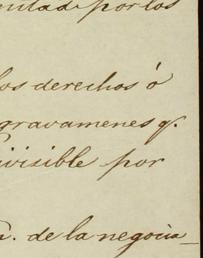 por los
los derechos ó
gravamenes q.
ivisible por
de la negocia_